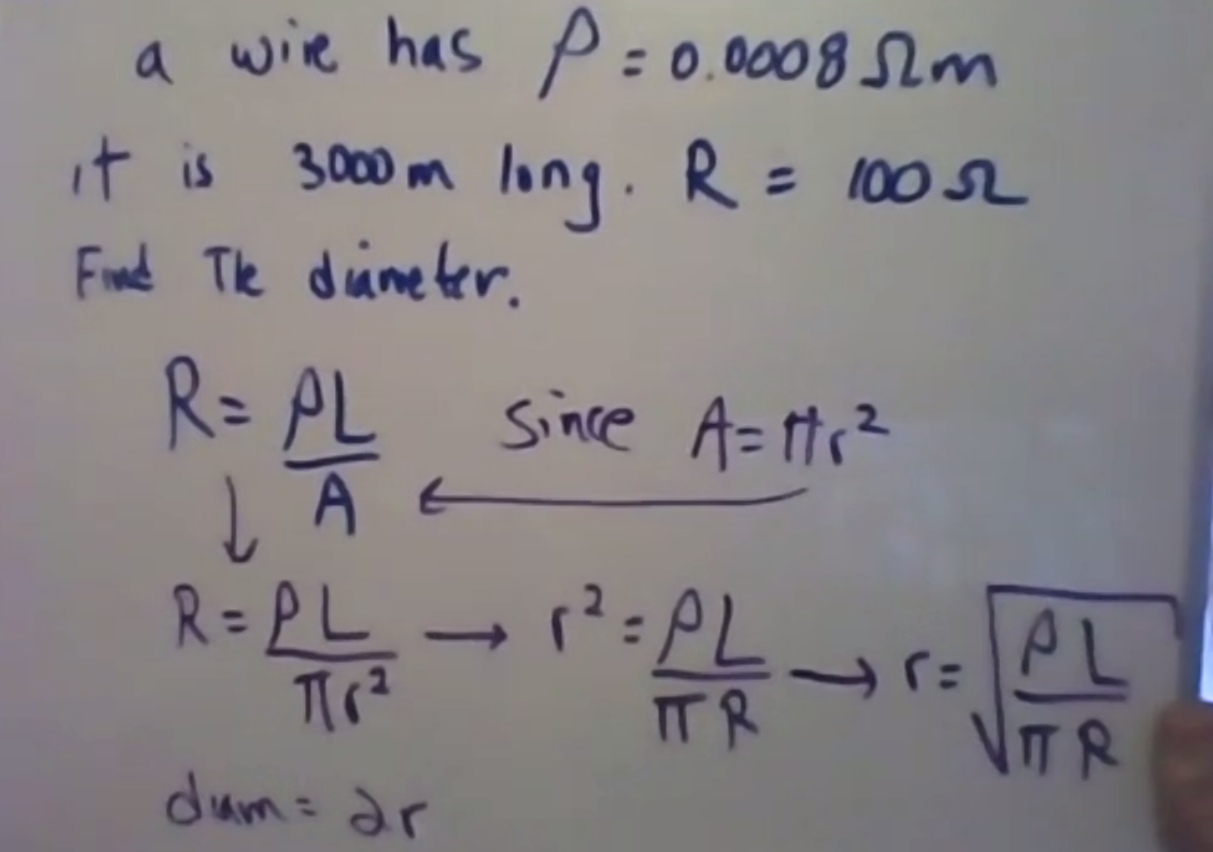 a wire has ρ = 0.0008 Ωm
it is 3000m long. R = 100 Ω
Find The diameter.
R = ρL/A since A = πr²
R = ρL/πr² → r² = ρL/πR → r = √(ρL/πR)
diam = 2r